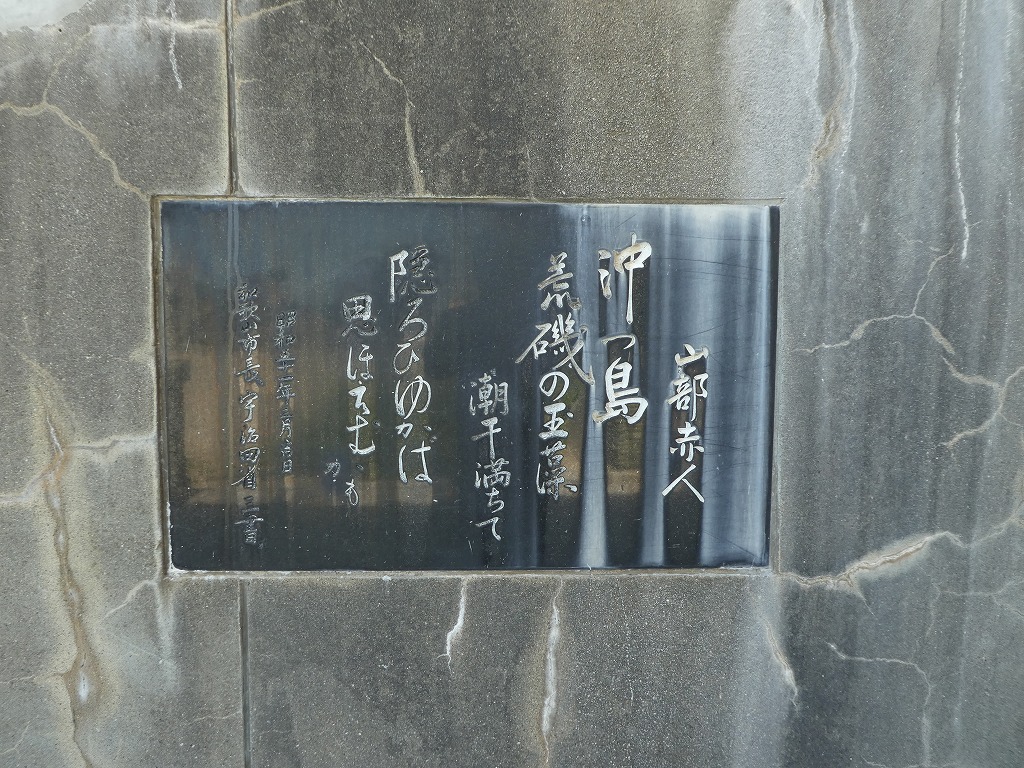 山部赤人
沖つ島
荒磯の玉藻
潮干満ちて
隠ろひゆかば
思ほえむ
かも
昭和 年三月吉日
和歌山市長 宇治田省三書